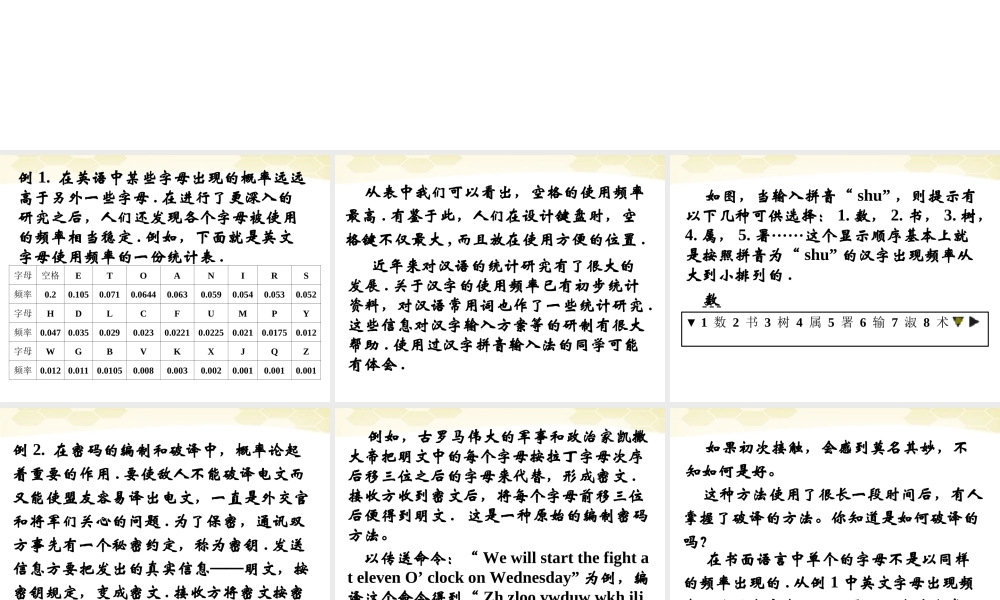 例 1. 在英语中某些字母出现的概率远远
高于另外一些字母 . 在进行了更深入的
研究之后，人们还发现各个字母被使用
的频率相当稳定 . 例如，下面就是英文
字母使用频率的一份统计表 .
字母 空格 E T O A N I R S
频率 0.2 0.105 0.071 0.0644 0.063 0.059 0.054 0.053 0.052
字母 H D L C F U M P Y
频率 0.047 0.035 0.029 0.023 0.0221 0.0225 0.021 0.0175 0.012
字母 W G B V K X J Q Z
频率 0.012 0.011 0.0105 0.008 0.003 0.002 0.001 0.001 0.001
从表中我们可以看出，空格的使用频率
最高 . 有鉴于此，人们在设计键盘时，空
格键不仅最大 , 而且放在使用方便的位置 .
近年来对汉语的统计研究有了很大的
发展 . 关于汉字的使用频率已有初步统计
资料，对汉语常用词也作了一些统计研究 .
这些信息对汉字输入方案等的研制有很大
帮助 . 使用过汉字拼音输入法的同学可能
有体会 .
如图，当输入拼音“ shu” ，则提示有
以下几种可供选择； 1. 数， 2. 书， 3. 树，
4. 属， 5. 署……这个显示顺序基本上就
是按照拼音为“ shu” 的汉字出现频率从
大到小排列的 .
数
▼ 1 数 2 书 3 树 4 属 5 署 6 输 7 淑 8 术
例 2. 在密码的编制和破译中，概率论起
着重要的作用 . 要使敌人不能破译电文而
又能使盟友容易译出电文，一直是外交官
和将军们关心的问题 . 为了保密，通讯双
方事先有一个秘密约定，称为密钥 . 发送
信息方要把发出的真实信息——明文，按
密钥规定，变成密文 . 接收方将密文按密
例如，古罗马伟大的军事和政治家凯撒
大帝把明文中的每个字母按拉丁字母次序
后移三位之后的字母来代替，形成密文 .
接收方收到密文后，将每个字母前移三位
后便得到明文 . 这是一种原始的编制密码
方法。
以传送命令；“ We will start the fight a
t eleven O’ clock on Wednesday” 为例，编
译这个命令得到“ Zh zloo vwduw wkh ilj
如果初次接触，会感到莫名其妙，不
知如何是好。
这种方法使用了很长一段时间后，有人
掌握了破译的方法。你知道是如何破译的
吗？
在书面语言中单个的字母不是以同样
的频率出现的 . 从例 1 中英文字母出现频